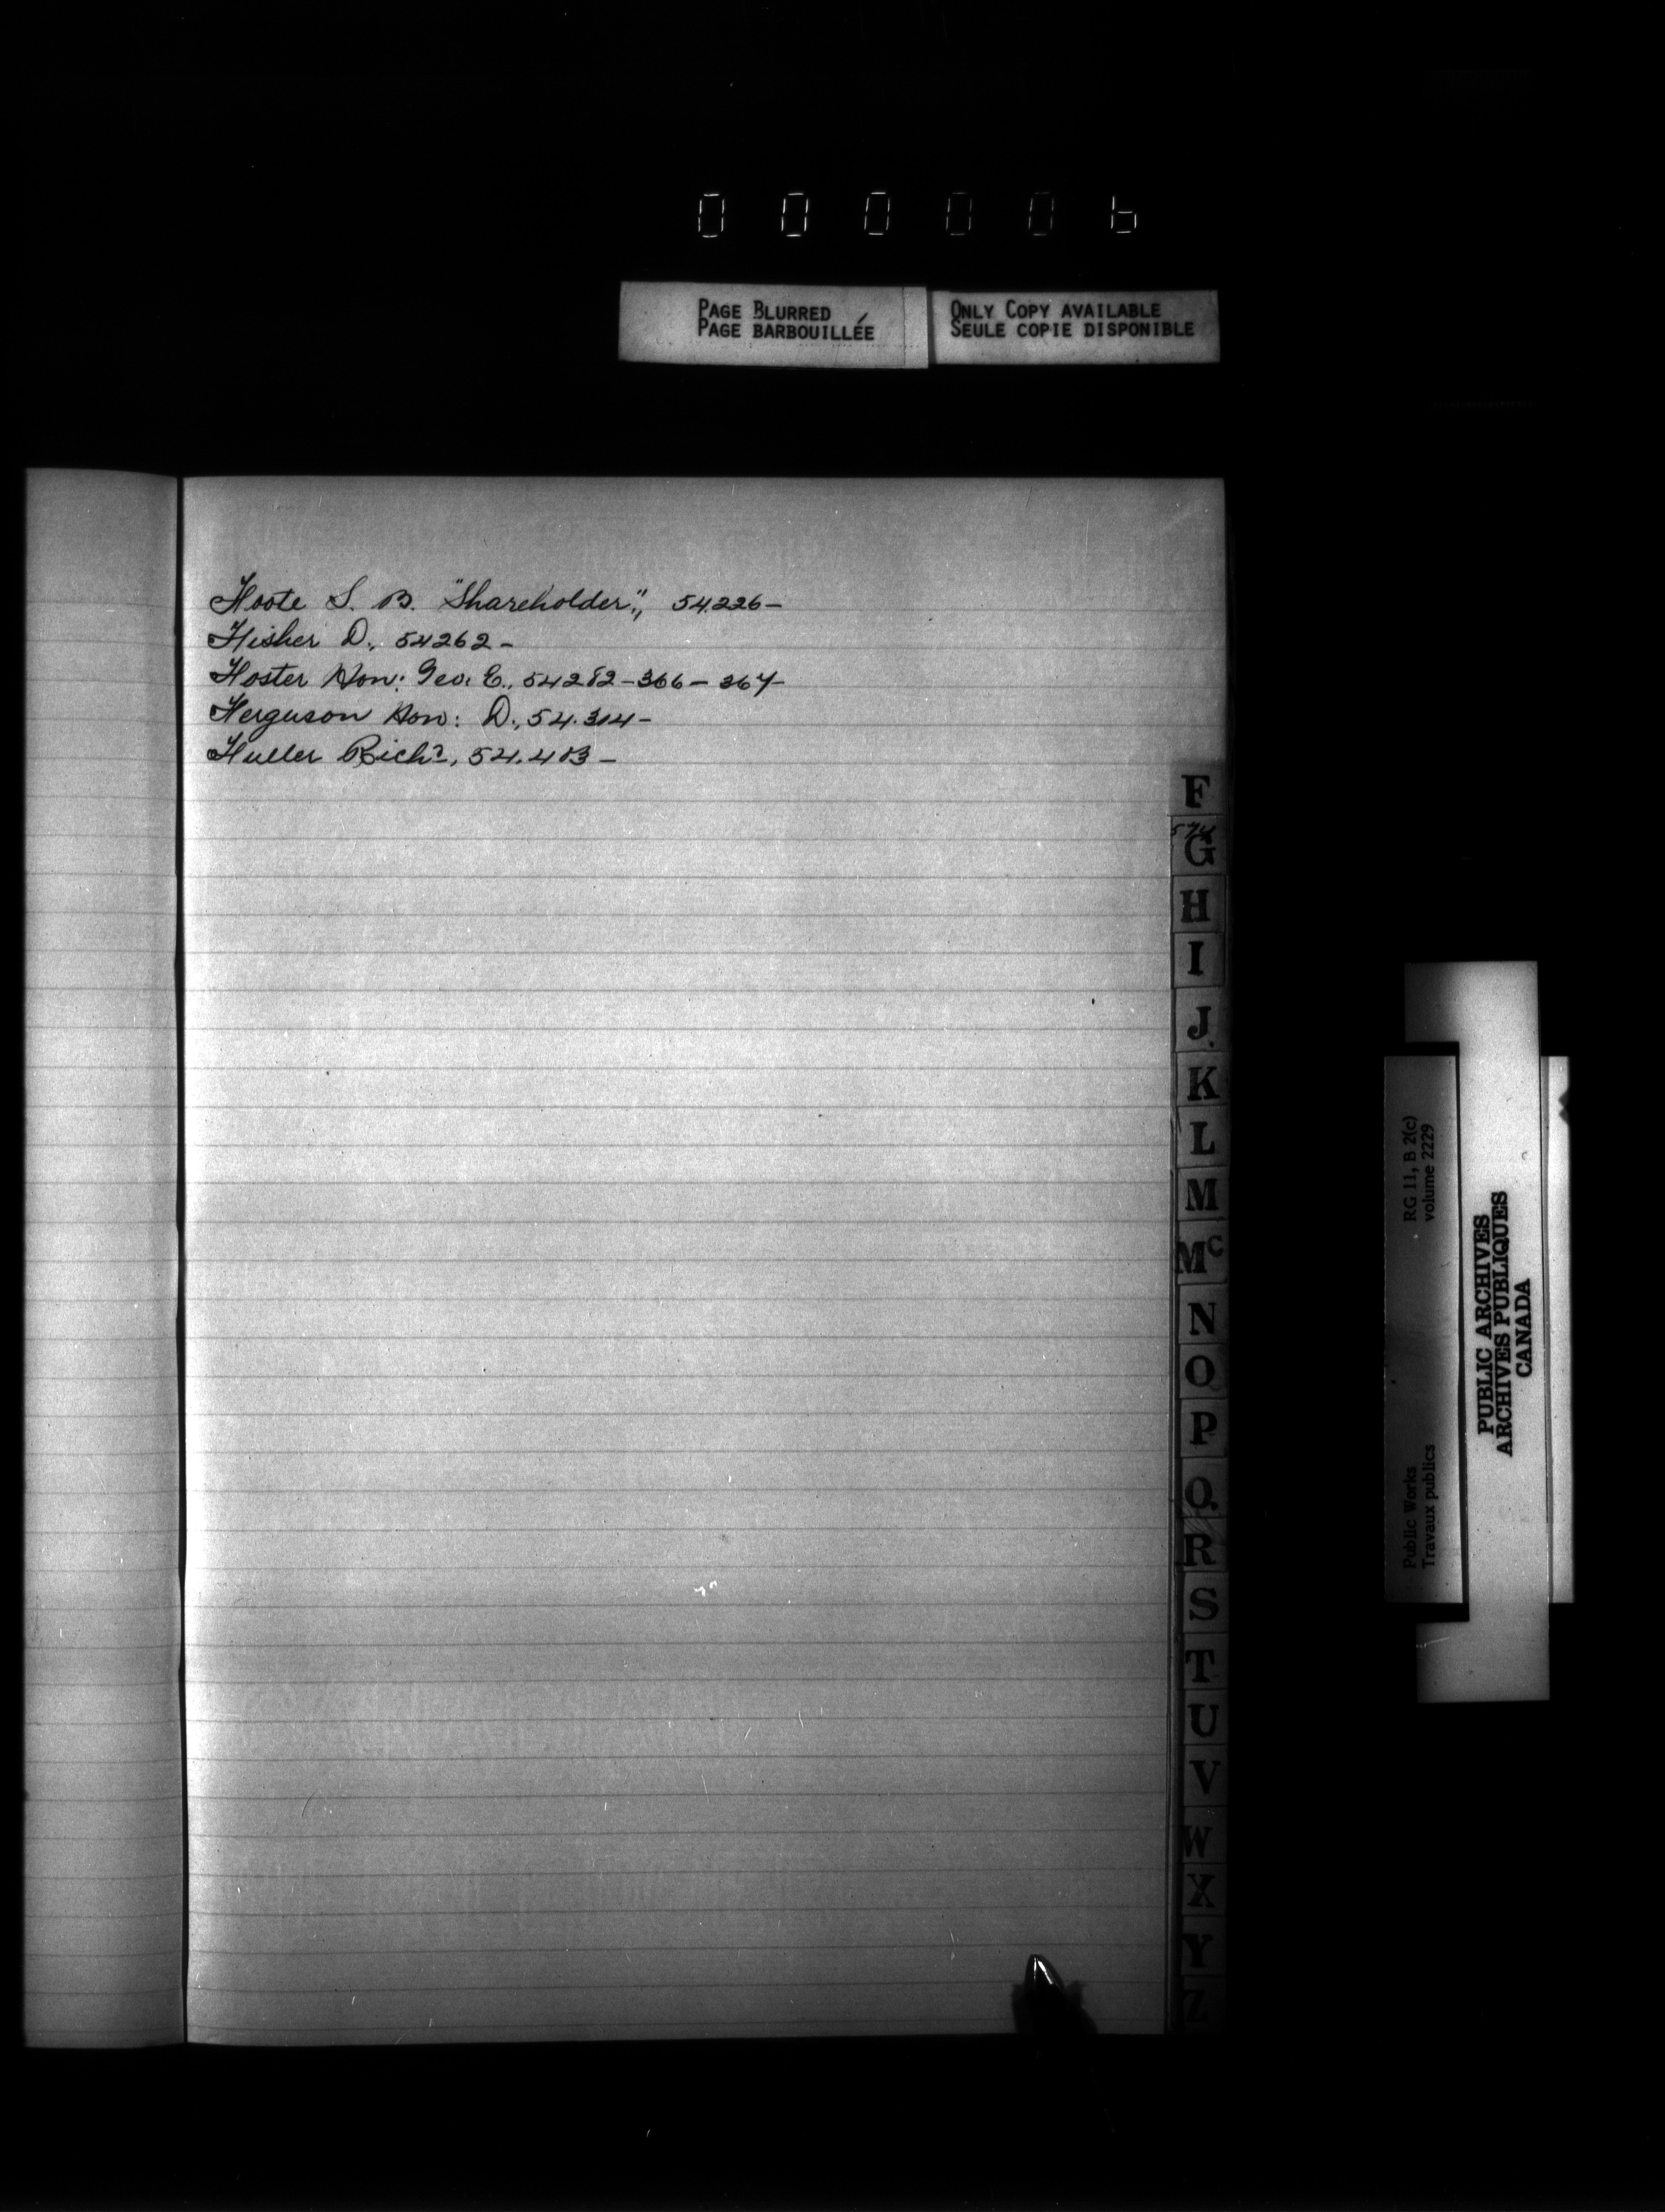 000006
PAGE BLURRED
PAGE BARBOUILLÉE
ONLY COPY AVAILABLE
SEULE COPIE DISPONIBLE
Foote S. B. "Shareholder", 54.226-
Fisher D., 54262-
Foster Hon: Geo. E., 54282-366-367-
Ferguson Hon: D., 54.314-
Fuller Richd, 54.403-
F
G
H
I
J
K
L
M
Mc
N
O
P
Q
R
S
T
U
V
W
X
Y
Z
RG 11, B 2(c)
volume 2229
Public Works
Travaux publics
PUBLIC ARCHIVES
ARCHIVES PUBLIQUES
CANADA